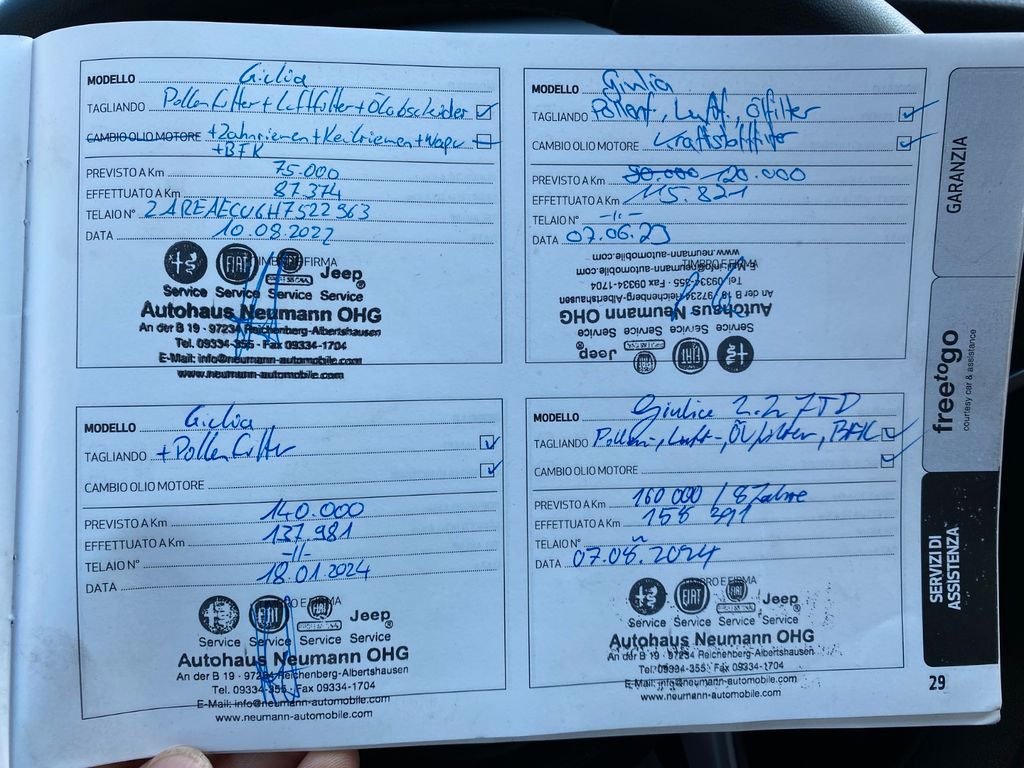 MODELLO Giulia
TAGLIANDO Pollenfilter + Luftfilter + Ölabscheider
CAMBIO OLIO MOTORE + Zahnriemen + Keilriemen + Wapu
+ BFK
PREVISTO A Km 75.000
EFFETTUATO A Km 87.374
TELAIO N°
DATA 10.08.2022
TIMBRO E FIRMA
FIAT
PROFESSIONAL
Jeep
Service Service Service Service
Autohaus Neumann OHG
An der B 19 · 97234 Reichenberg-Albertshausen
Tel. 09334-355 · Fax 09334-1704
E-Mail: info@neumann-automobile.com
www.neumann-automobile.com
MODELLO Giulia
TAGLIANDO Pollenf., Luftf., Ölfilter
CAMBIO OLIO MOTORE Kraftstofffilter
PREVISTO A Km 90.000 120.000
EFFETTUATO A Km 115.821
TELAIO N° -11-
DATA 07.06.23
TIMBRO E FIRMA
www.neumann-automobile.com
E-Mail: info@neumann-automobile.com
Tel. 09334-355 · Fax 09334-1704
An der B 19 · 97234 Reichenberg-Albertshausen
Autohaus Neumann OHG
Service Service Service Service
FIAT
Jeep
MODELLO Giulia
TAGLIANDO + Pollenfilter
CAMBIO OLIO MOTORE
PREVISTO A Km 140.000
EFFETTUATO A Km 137.981
TELAIO N° -11-
DATA 18.01.2024
TIMBRO E FIRMA
FIAT
Jeep
Service Service Service Service
Autohaus Neumann OHG
An der B 19 · 97234 Reichenberg-Albertshausen
Tel. 09334-355 · Fax 09334-1704
E-Mail: info@neumann-automobile.com
www.neumann-automobile.com
MODELLO Giulia 2.2 JTD
TAGLIANDO Pollen-, Luft-, Ölfilter, BFK
CAMBIO OLIO MOTORE
PREVISTO A Km 160 000 / 8 Jahre
EFFETTUATO A Km 158 391
TELAIO N° "
DATA 07.08.2024
TIMBRO E FIRMA
FIAT
Jeep
Service Service Service Service
Autohaus Neumann OHG
An der B 19 · 97234 Reichenberg-Albertshausen
Tel. 09334-355 · Fax 09334-1704
E-Mail: info@neumann-automobile.com
www.neumann-automobile.com
GARANZIA
freetogo
courtesy car & assistance
SERVIZI DI
ASSISTENZA
29